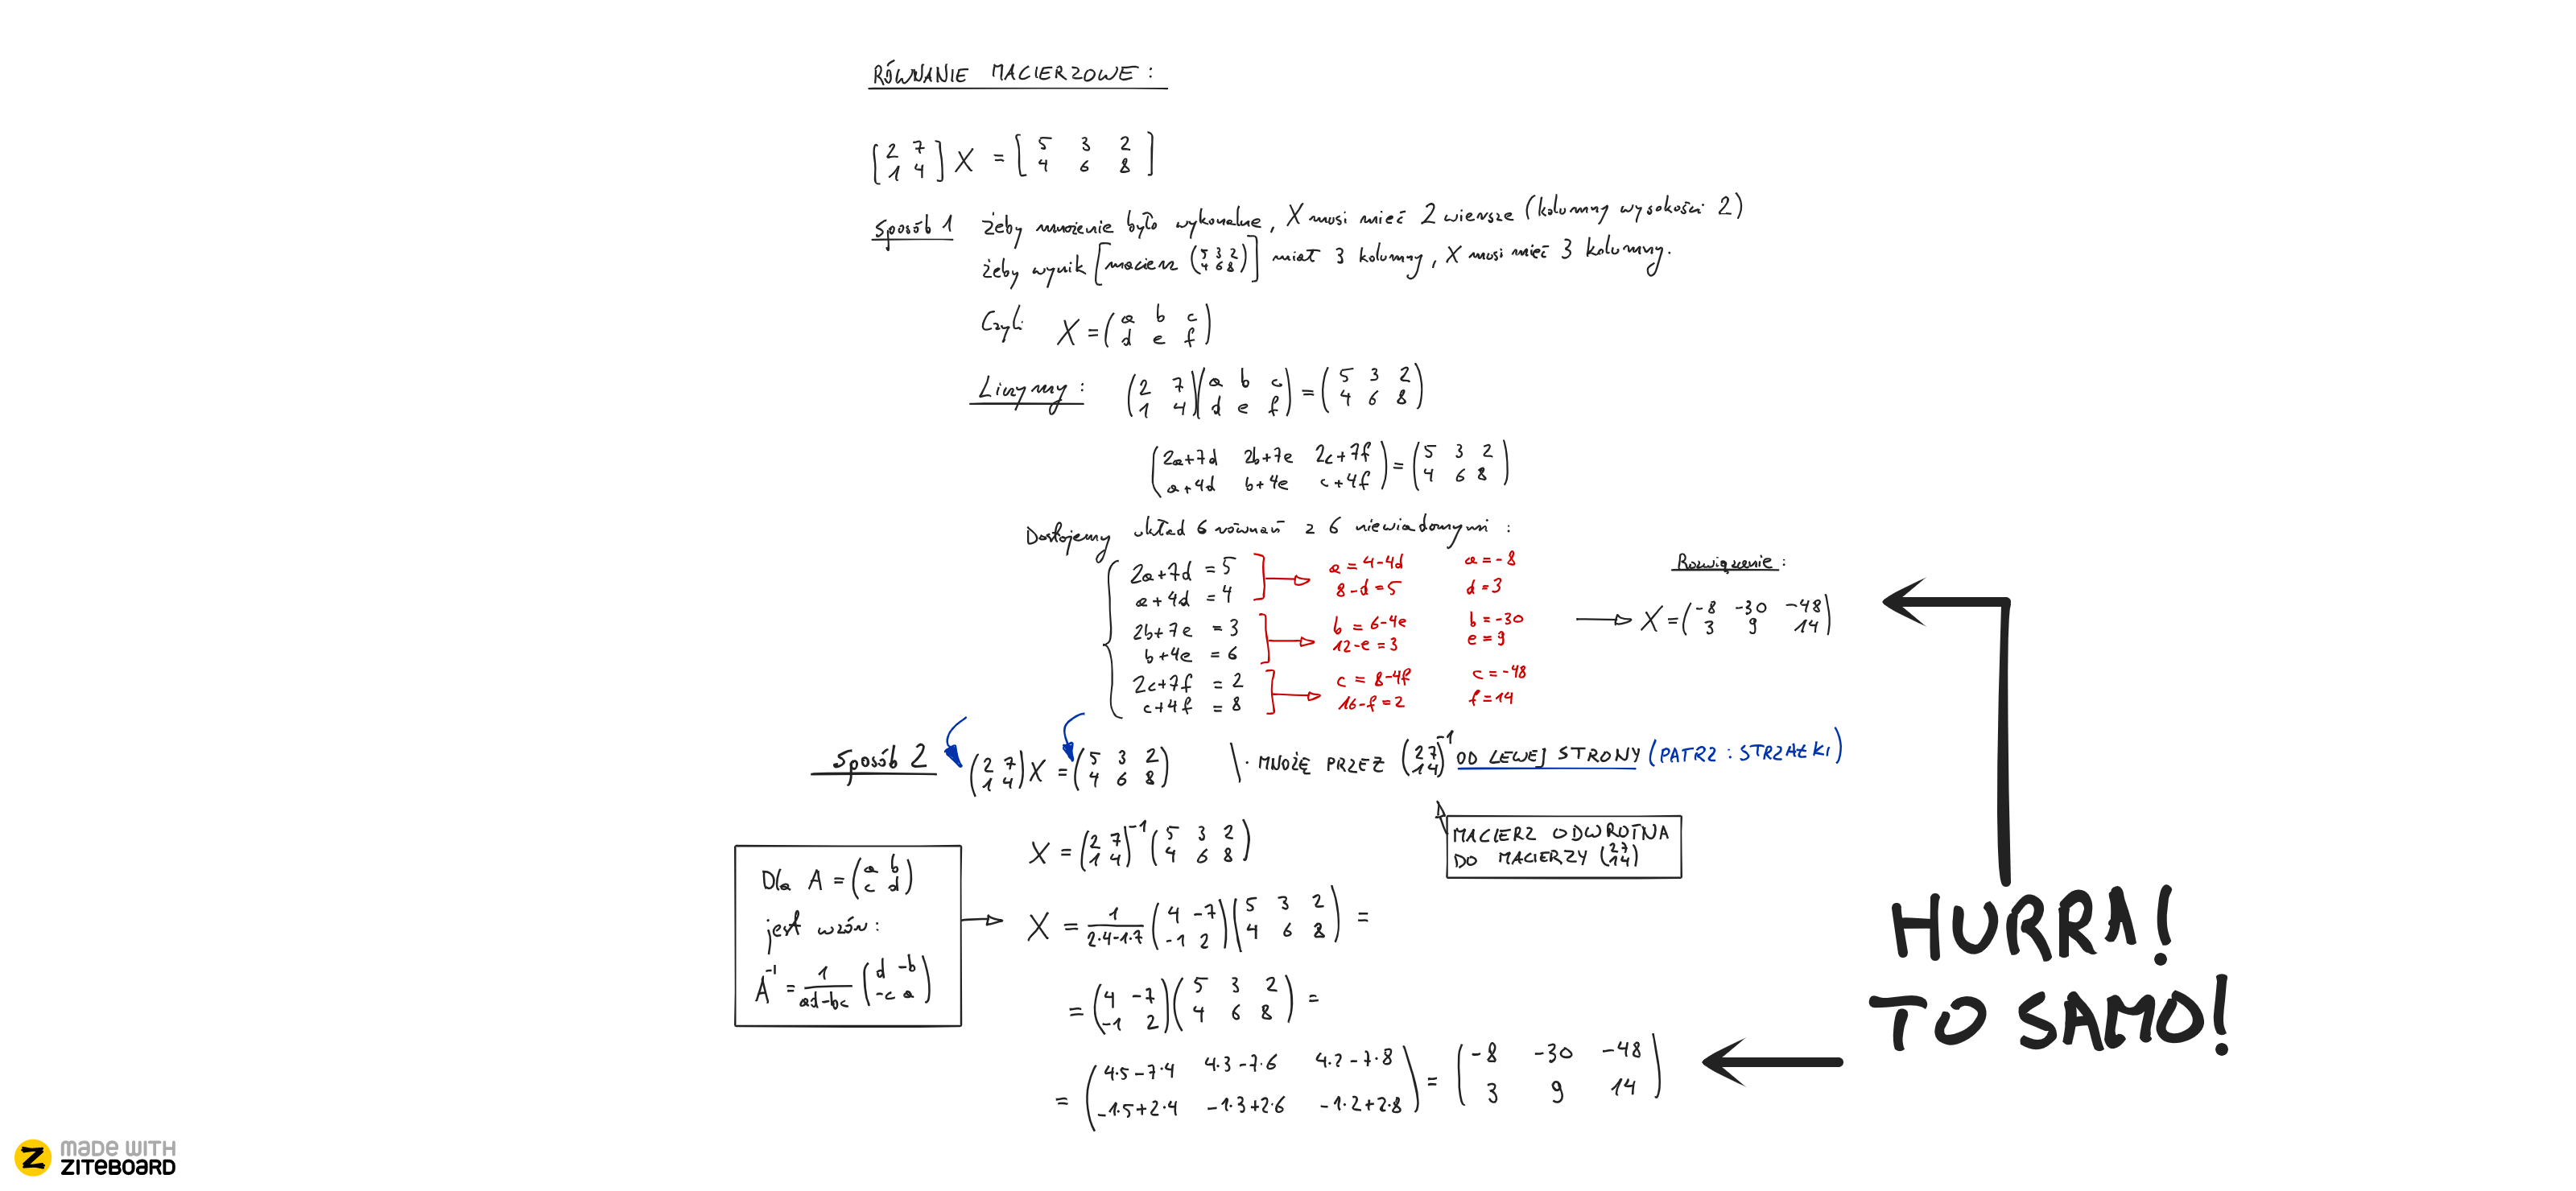 RÓWNANIE MACIERZOWE :
[2 7
1 4] X = [5 3 2
4 6 8]
Sposób 1 żeby mnożenie było wykonalne, X musi mieć 2 wiersze (kolumny wysokości 2)
żeby wynik [macierz (5 3 2
4 6 8)] miał 3 kolumny, X musi mieć 3 kolumny.
Czyli X = (a b c
d e f)
Liczymy : (2 7
1 4)(a b c
d e f) = (5 3 2
4 6 8)
(2a+7d 2b+7e 2c+7f
a+4d b+4e c+4f) = (5 3 2
4 6 8)
Dostajemy układ 6 równań z 6 niewiadomymi :
2a+7d = 5
a+4d = 4
2b+7e = 3
b+4e = 6
2c+7f = 2
c+4f = 8
a = 4-4d a = -8
8-d = 5 d = 3
b = 6-4e b = -30
12-e = 3 e = 9
c = 8-4f c = -48
16-f = 2 f = 14
Rozwiązanie :
X = (-8 -30 -48
3 9 14)
Sposób 2 (2 7
1 4) X = (5 3 2
4 6 8) \ · MNOŻĘ PRZEZ (2 7
1 4)^-1 OD LEWEJ STRONY (PATRZ : STRZAŁKI)
MACIERZ ODWROTNA
DO MACIERZY (2 7
1 4)
X = (2 7
1 4)^-1 (5 3 2
4 6 8)
Dla A = (a b
c d)
jest wzór :
A^-1 = 1/(ad-bc) (d -b
-c a)
X = 1/(2·4-1·7) (4 -7
-1 2)(5 3 2
4 6 8) =
= (4 -7
-1 2)(5 3 2
4 6 8) =
= (4·5-7·4 4·3-7·6 4·2-7·8
-1·5+2·4 -1·3+2·6 -1·2+2·8) = (-8 -30 -48
3 9 14)
HURRA!
TO SAMO!
Z MADE WITH
ZITEBOARD